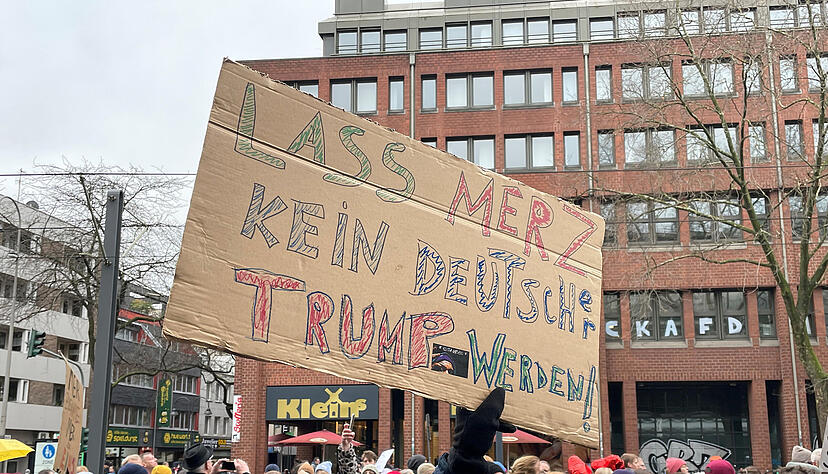 LASS MERZ
KEIN DEUTSCHER
TRUMP WERDEN!
CKAFD
Klein